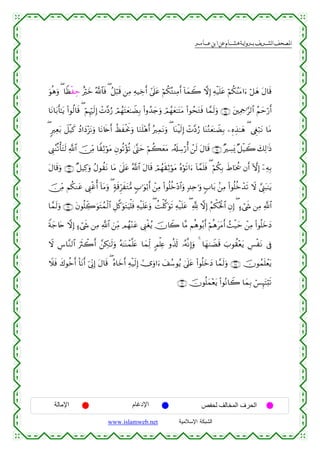 المصحف الشريف برواية هشام عن ابن عامر
قَالَ هَلْ ءَامَنُكُمْ عَلَيْهِ إِلَّا كَمَآ أَمِنتُكُمْ عَلَىٰٓ أَخِيهِ مِن قَبْلُ ۖ فَٱللَّهُ خَيْرٌ حِفْظًا ۖ وَهُوَ
أَرْحَمُ ٱلرَّٰحِمِينَ وَلَمَّا فَتَحُوا۟ مَتَٰعَهُمْ وَجَدُوا۟ بِضَٰعَتَهُمْ رُدَّتْ إِلَيْهِمْ ۖ قَالُوا۟ يَٰٓأَبَانَا
مَا نَبْغِى ۖ هَٰذِهِۦ بِضَٰعَتُنَا رُدَّتْ إِلَيْنَا ۖ وَنَمِيرُ أَهْلَنَا وَنَحْفَظُ أَخَانَا وَنَزْدَادُ كَيْلَ بَعِيرٍ ۖ
ذَٰلِكَ كَيْلٌ يَسِيرٌ قَالَ لَنْ أُرْسِلَهُۥ مَعَكُمْ حَتَّىٰ تُؤْتُونِ مَوْثِقًا مِّنَ ٱللَّهِ لَتَأْتُنَّنِى
بِهِۦٓ إِلَّآ أَن يُحَاطَ بِكُمْ ۖ فَلَمَّآ ءَاتَوْهُ مَوْثِقَهُمْ قَالَ ٱللَّهُ عَلَىٰ مَا نَقُولُ وَكِيلٌ وَقَالَ
يَٰبَنِىَّ لَا تَدْخُلُوا۟ مِنۢ بَابٍ وَٰحِدٍ وَٱدْخُلُوا۟ مِنْ أَبْوَٰبٍ مُّتَفَرِّقَةٍ ۖ وَمَآ أُغْنِى عَنكُم مِّنَ
ٱللَّهِ مِن شَىْءٍ ۖ إِنِ ٱلْحُكْمُ إِلَّا لِلَّهِ ۖ عَلَيْهِ تَوَكَّلْتُ ۖ وَعَلَيْهِ فَلْيَتَوَكَّلِ ٱلْمُتَوَكِّلُونَ وَلَمَّا
دَخَلُوا۟ مِنْ حَيْثُ أَمَرَهُمْ أَبُوهُم مَّا كَانَ يُغْنِى عَنْهُم مِّنَ ٱللَّهِ مِن شَىْءٍ إِلَّا حَاجَةً
فِى نَفْسِ يَعْقُوبَ قَضَىٰهَا ۚ وَإِنَّهُۥ لَذُو عِلْمٍ لِّمَا عَلَّمْنَٰهُ وَلَٰكِنَّ أَكْثَرَ ٱلنَّاسِ لَا
يَعْلَمُونَ وَلَمَّا دَخَلُوا۟ عَلَىٰ يُوسُفَ ءَاوَىٰٓ إِلَيْهِ أَخَاهُ ۖ قَالَ إِنِّىٓ أَنَا۠ أَخُوكَ فَلَا
تَبْتَئِسْ بِمَا كَانُوا۟ يَعْمَلُونَ
الحرف المخالف لحفص الإدغام الإمالة
الشبكة الإسلامية www.islamweb.net